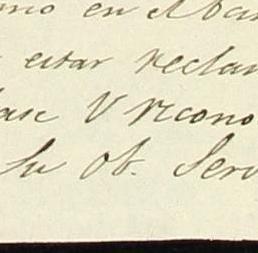 en el
estar reclam
ase V recono
Su Ob. Serv